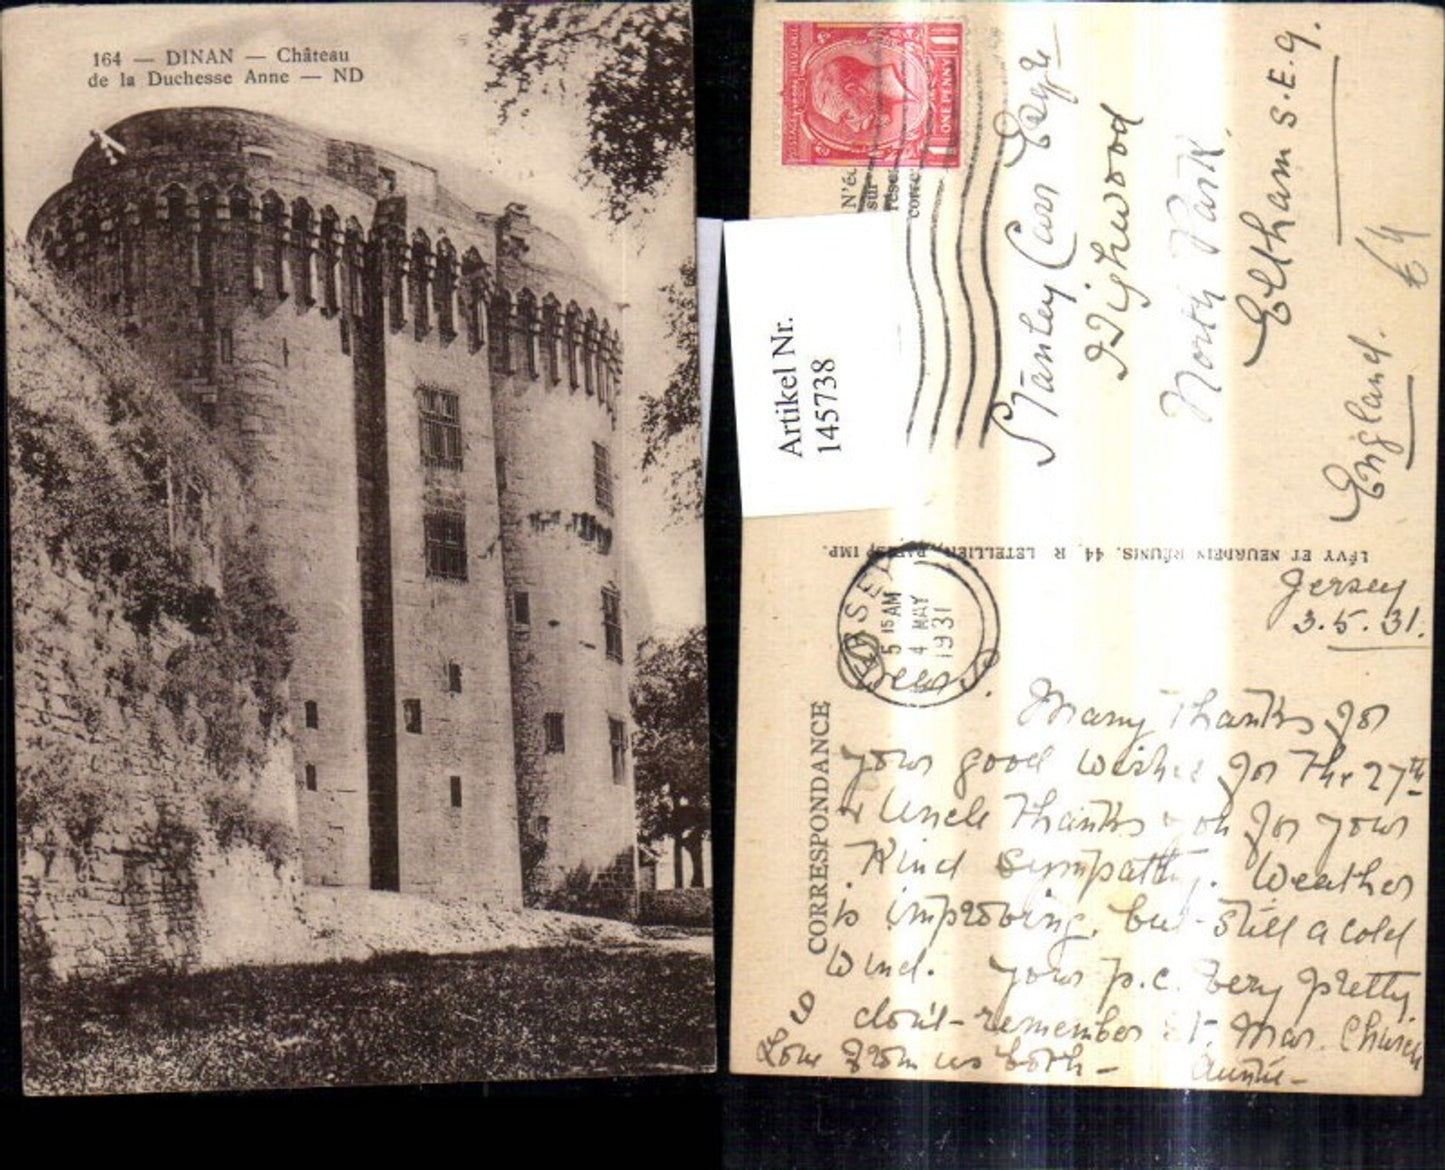 164 — DINAN — Château
de la Duchesse Anne — ND
Artikel Nr.
145738
POSTAGE REVENUE
ONE PENNY
1 1
N'é
sur
rése
corre
Stanley Carr Esqre
Highwood
North Park
Eltham S.E.9.
England.
LÉVY ET NEURDEIN RÉUNIS. 44, R. LETELLIER, PARIS, IMP.
JERSEY
5 15 AM
4 MAY
1931
CORRESPONDANCE
Jersey
3.5.31.
Many Thanks for
your good wishes for the 27th
& Uncle thanks you for your
kind sympathy. Weather
is improving, but still a cold
wind. Your p.c. very pretty
don't remember St. Mar. Church
Love from us both —
Auntie —